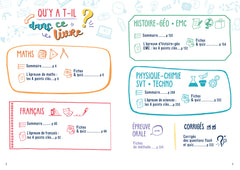 QU'Y A T-IL
dans ce
livre ?
MATHS
Sommaire
L'épreuve de maths :
les 4 points clés
Fiches
& quiz
FRANÇAIS
Sommaire
L'épreuve de français :
les 4 points clés
Fiches
& quiz
HISTOIRE-GÉO + EMC
Sommaire
L'épreuve d'histoire-géo
EMC : les 4 points clés
Fiches
& quiz
PHYSIQUE-CHIMIE
SVT + TECHNO
Sommaire
L'épreuve de sciences :
les 4 points clés
Fiches
& quiz
ÉPREUVE
ORALE
Fiches
de méthode
CORRIGÉS
Corrigés
des questions flash
et quiz